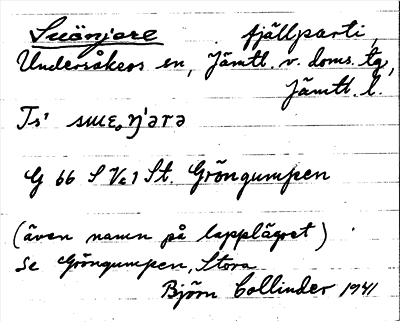 Suänjare fjällparti,
Undersåkers sn, Jämtl. v. doms. tg,
Jämtl. l.
G 66 S V c 1 St. Gröngumpen
(även namn på lapplägret)
Se Gröngumpen, Stora
Björn Collinder 1941